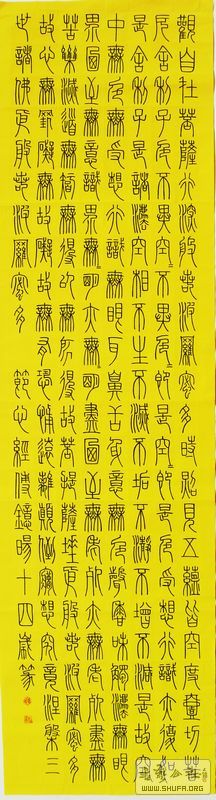 觀自在菩薩行深般若波羅蜜多時照見五蘊皆空度一切苦
厄舍利子色不異空空不異色色即是空空即是色受想行識亦復如
是舍利子是諸法空相不生不滅不垢不淨不增不減是故空
中無色無受想行識無眼耳鼻舌身意無色聲香味觸法無眼
界乃至無意識界無無明亦無無明盡乃至無老死亦無老死盡無
苦集滅道無智無得以無所得故菩提薩埵依般若波羅蜜多
故心無罣礙無罣礙故無有恐怖遠離顛倒夢想究竟涅槃三
世諸佛依般若波羅蜜多 節心經 鏡暘十四歲篆
WWW.SHUFA.ORG